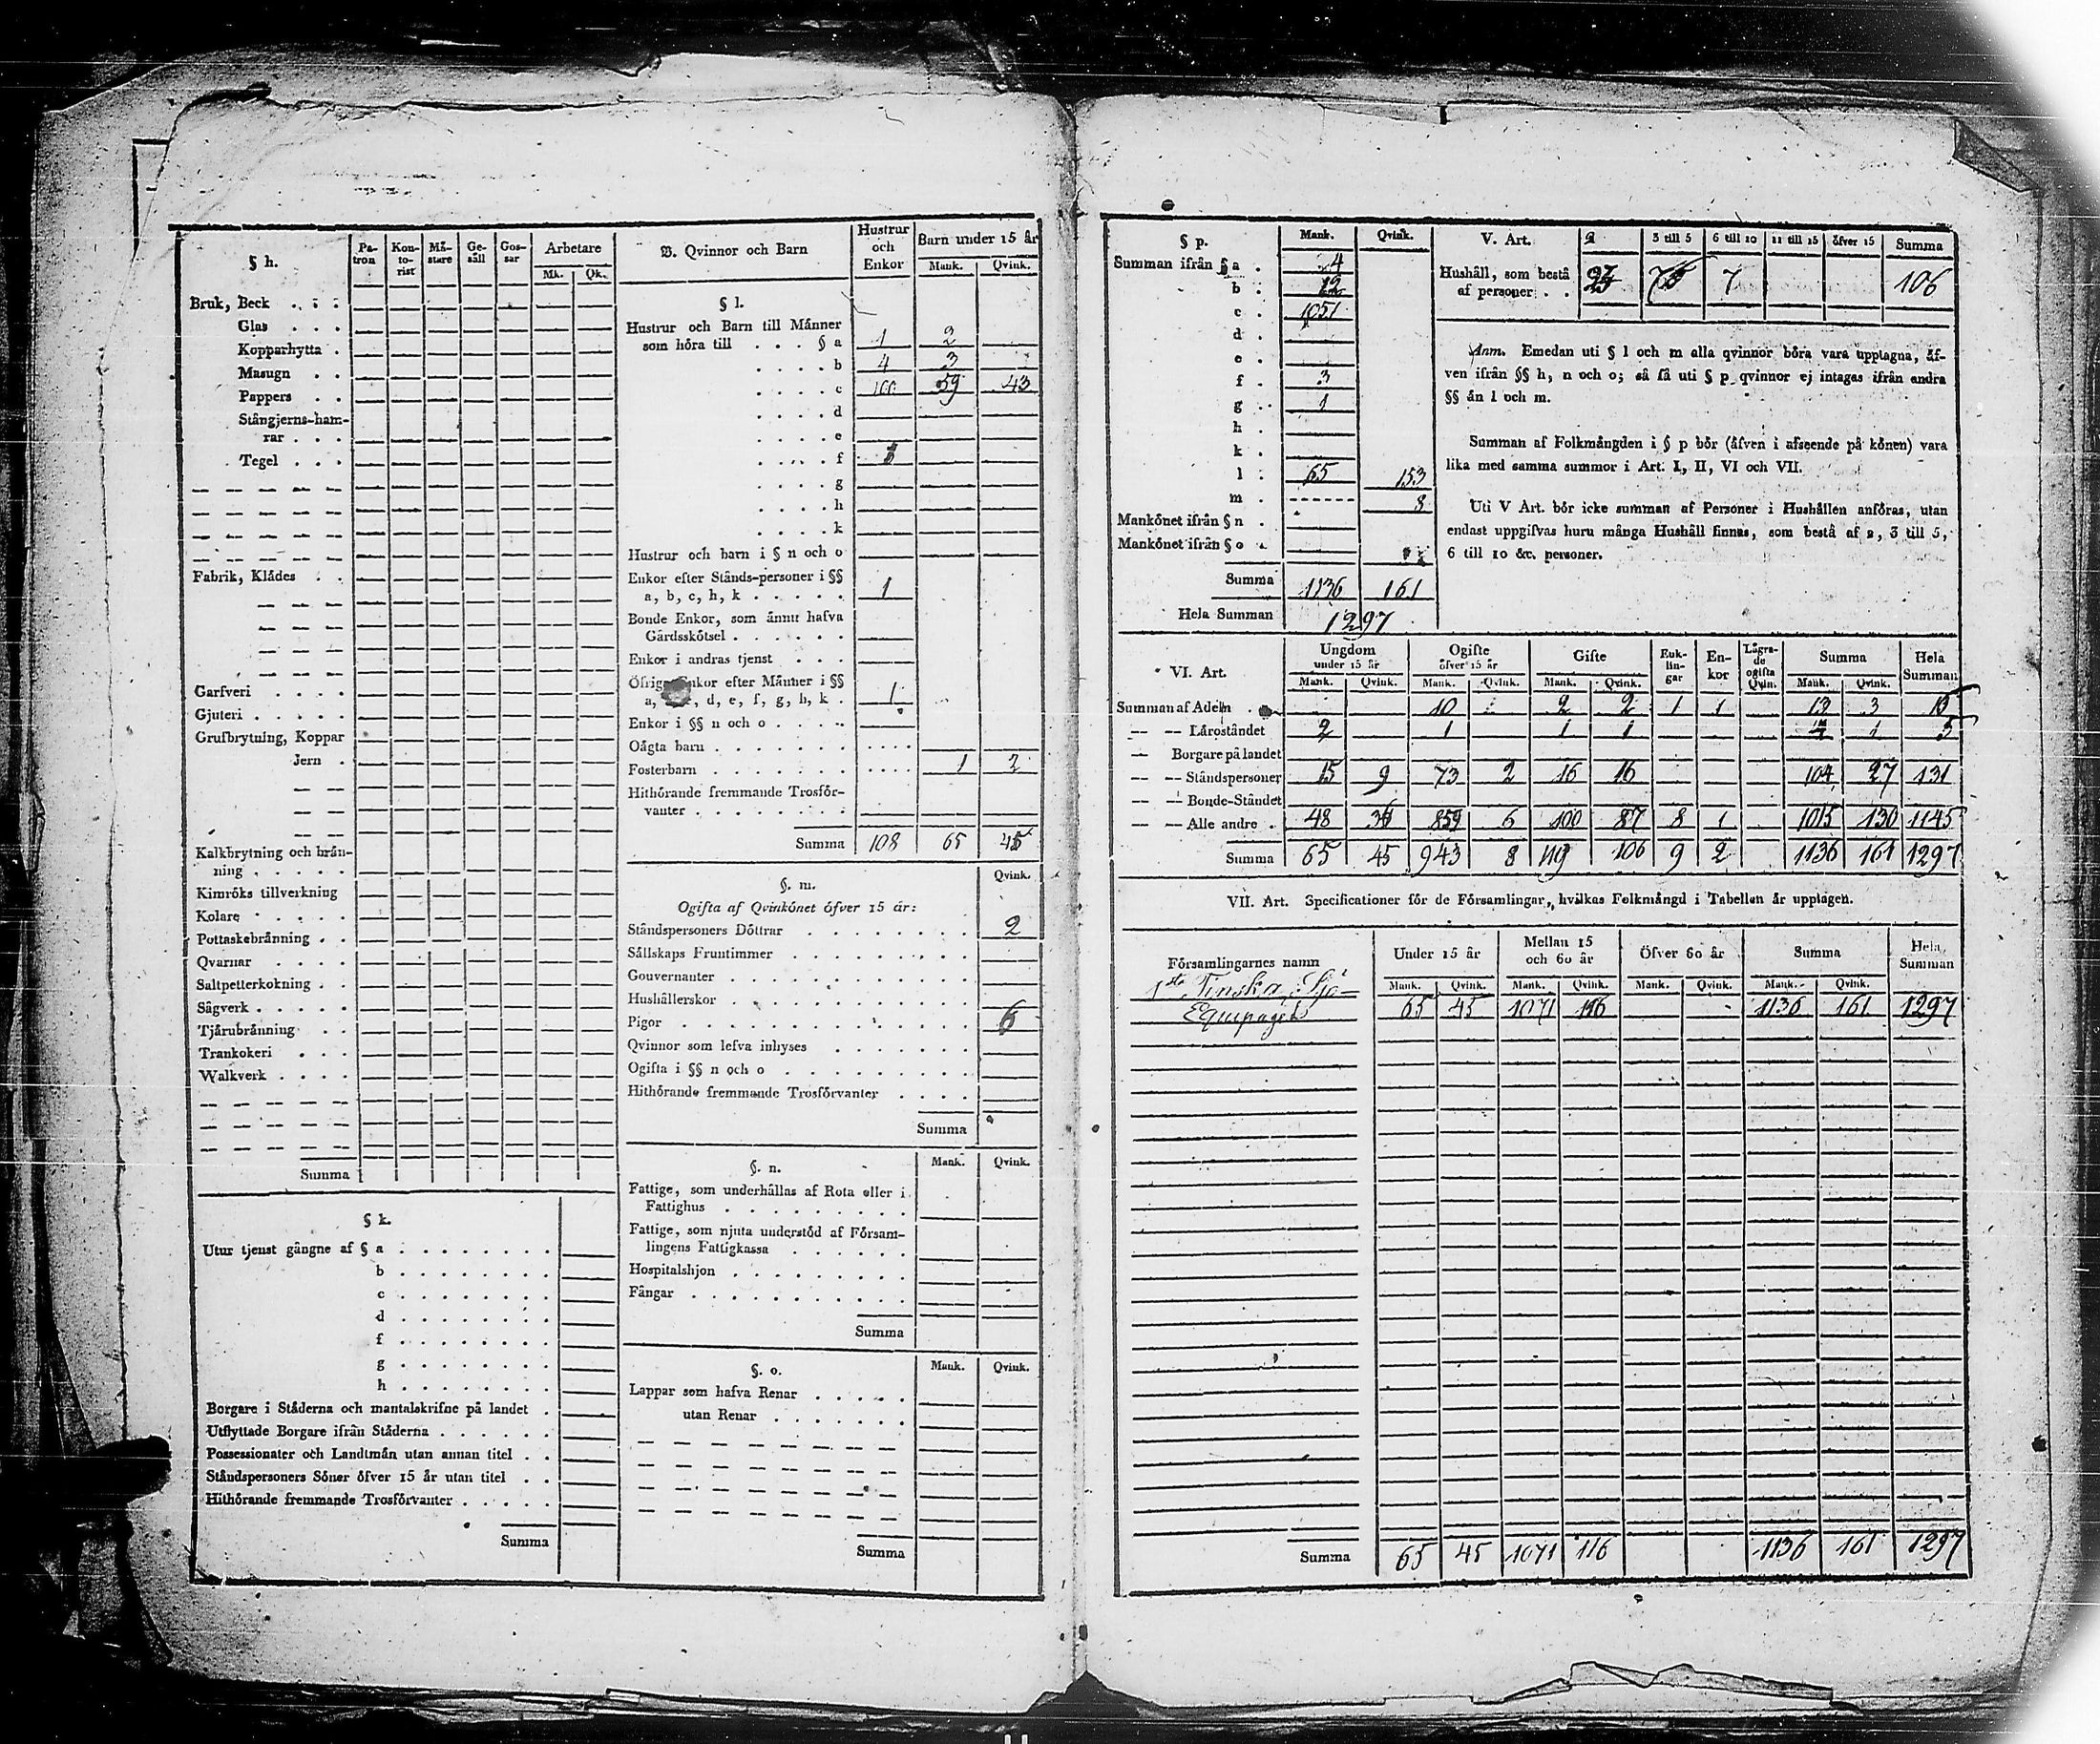 § h.
Pa-tron Kon-to-rist Må-stare Ge-säll Gos-sar Arbetare
Mk. Qk.
Bruk, Beck
Glas
Kopparhytta
Masugn
Pappers
Stångjerns-ham-
rar
Tegel
Fabrik, Klådes
Garfveri
Gjuteri
Grufbrytning, Koppar
Jern
Kalkbrytning och brän-
ning
Kimröks tillverkning
Kolare
Pottaskebränning
Qvarnar
Saltpetterkokning
Sågverk
Tjärubränning
Trankokeri
Walkverk
Summa
§ k.
Utur tjenst gångne af § a
b
c
d
f
g
h
Borgare i Städerna och mantalskrifne på landet
Utflyttade Borgare ifrån Städerna
Possessionater och Landtmän utan annan titel
Ståndspersoners Söner öfver 15 år utan titel
Hithörande fremmande Trosförvanter
Summa
B. Qvinnor och Barn Hustrur och Enkor Barn under 15 år
Mank. Qvink.
§ l.
Hustrur och Barn till Männer
som höra till § a 1 2
b 4 3
c 100 59 43
d
e
f
g
h
k
Hustrur och barn i § n och o
Enkor efter Stånds-personer i §§
a, b, c, h, k 1
Bonde Enkor, som ännu hafva
Gårdsskötsel
Enkor i andras tjenst
Öfriga Enkor efter Männer i §§
a, d, e, f, g, h, k 1
Enkor i §§ n och o
Oägta barn
Fosterbarn 1 2
Hithörande fremmande Trosför-
vanter
Summa 108 65 45
§. m. Qvink.
Ogifta af Qvinkönet öfver 15 år:
Ståndspersoners Döttrar 2
Sällskaps Fruntimmer
Gouvernanter
Hushållerskor
Pigor 6
Qvinnor som lefva inhyses
Ogifta i §§ n och o
Hithörande fremmande Trosförvanter
Summa
§. n. Mank. Qvink.
Fattige, som underhållas af Rota eller i
Fattighus
Fattige, som njuta understöd af Försam-
lingens Fattigkassa
Hospitalshjon
Fångar
Summa
§. o. Mank. Qvink.
Lappar som hafva Renar
utan Renar
Summa
§ p. Mank. Qvink.
Summan ifrån § a 4
b 12
c 1051
d
e
f 3
g 1
h
k
l 65 153
m 8
Mankönet ifrån § n
Mankönet ifrån § o
Summa 1136 161
Hela Summan 1297
V. Art. 2 3 till 5 6 till 10 11 till 15 öfver 15 Summa
Hushåll, som bestå
af personer 7 106
Anm. Emedan uti § l och m alla qvinnor böra vara upptagna, äf-
ven ifrån §§ h, n och o; så få uti § p qvinnor ej intagas ifrån andra
§§ än l och m.
Summan af Folkmängden i § p bör (äfven i afseende på könen) vara
lika med samma summor i Art. I, II, VI och VII.
Uti V Art. bör icke summan af Personer i Hushållen anföras, utan
endast uppgifvas huru många Hushåll finnas, som bestå af 2, 3 till 5,
6 till 10 &c. personer.
VI. Art. Ungdom under 15 år Ogifte öfver 15 år Gifte Enk-lin-gar En-kor Lägra-de ogifta Qvin. Summa Hela Summan
Mank. Qvink. Mank. Qvink. Mank. Qvink. Mank. Qvink.
Summan af Adeln 10 2 2 1 1 13 3
Läroståndet 2 1 1 1 4 1 5
Borgare på landet
Ståndspersoner 15 9 73 2 16 16 104 27 131
Bonde-Ståndet
Alle andre 48 36 859 6 100 87 8 1 1015 130 1145
Summa 65 45 943 8 119 106 9 2 1136 161 1297
VII. Art. Specificationer för de Församlingar, hvilkas Folkmängd i Tabellen är upptagen.
Församlingarnes namn Under 15 år Mellan 15 och 60 år Öfver 60 år Summa Hela Summan
Mank. Qvink. Mank. Qvink. Mank. Qvink. Mank. Qvink.
1sta Finska Sjö-
Equipaget 65 45 1071 116 1136 161 1297
Summa 65 45 1071 116 1136 161 1297